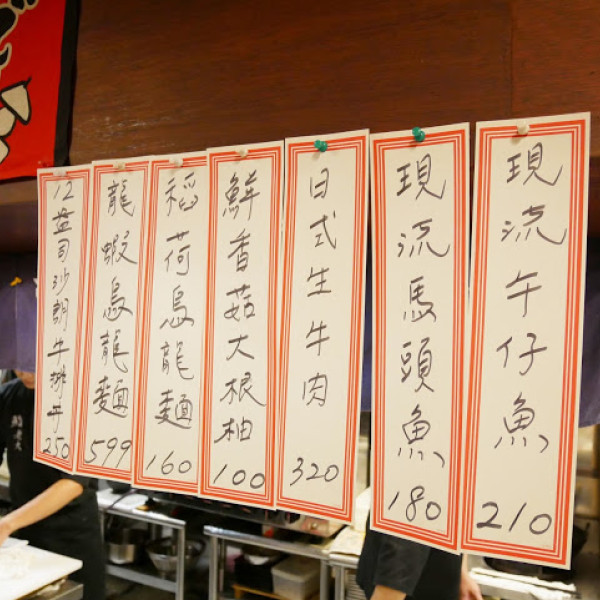 現流午仔魚 210
現流馬頭魚 180
日式生牛肉 320
鮮香菇大根柚 100
稻荷烏龍麵 160
龍蝦烏龍麵 599
12盎司沙朗牛排丼 250